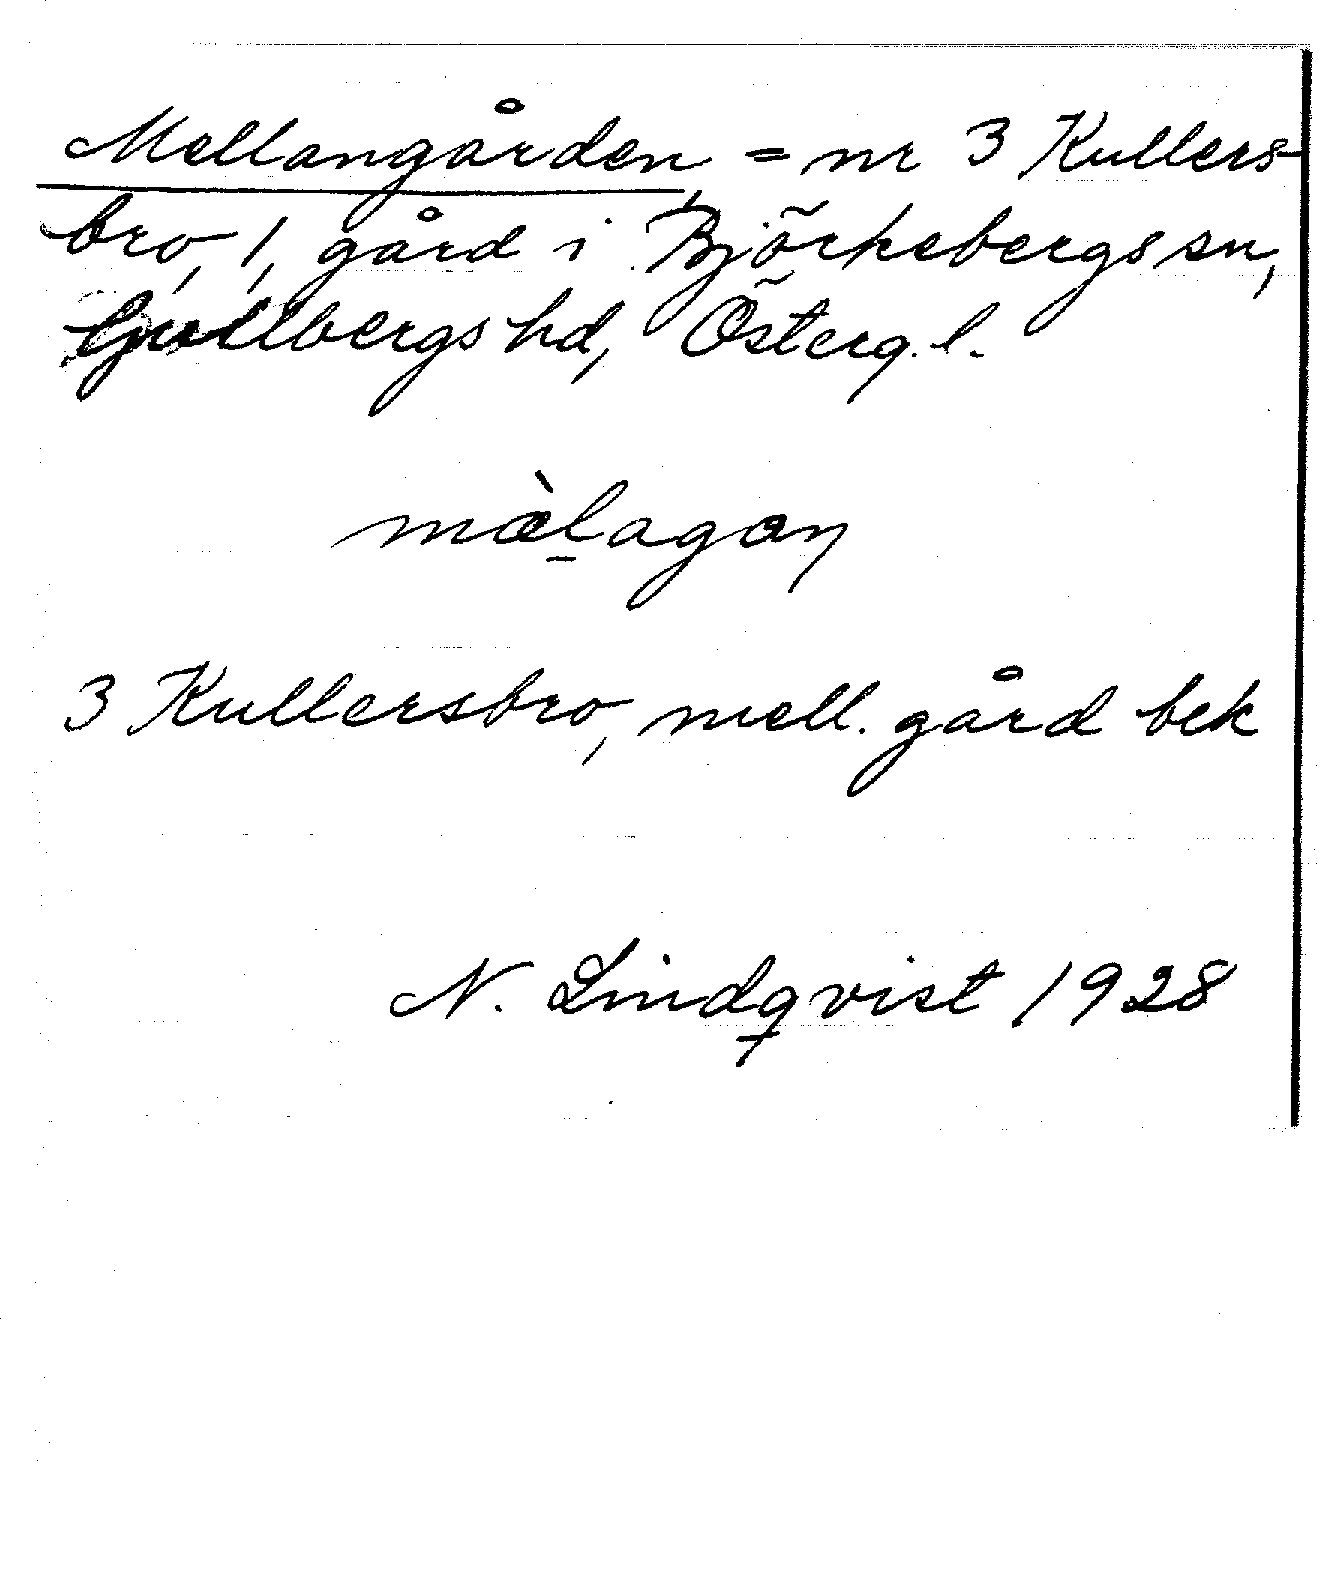 Mellangården, = nr 3 Kullers-
bro, 1, gård i Björkebergs sn,
Gullbergs hd, Österg. l.
mæ̀l̠agɑn
3 Kullersbro, mell. gård bek
N. Lindqvist 1928